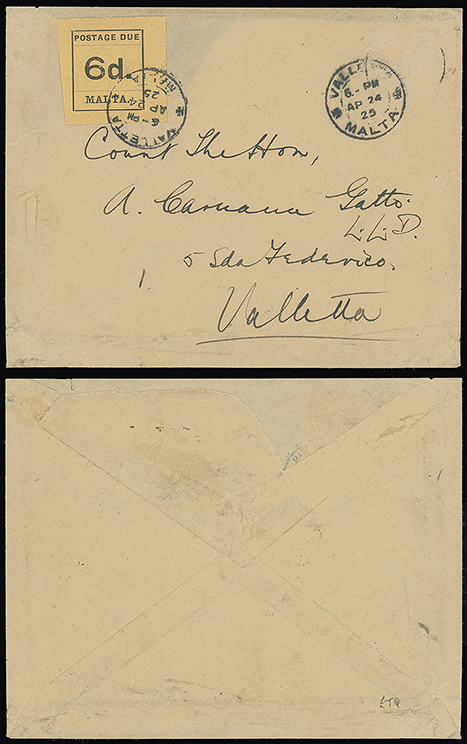 POSTAGE DUE
6d.
MALTA.
VALLETTA
6-PM
AP 24
25
MALTA
VALLETTA
6-PM
AP 24
25
MALTA
Count The Hon,
A. Caruana Gatto.
L.L.D.
5 Sda Federico.
1
Valletta